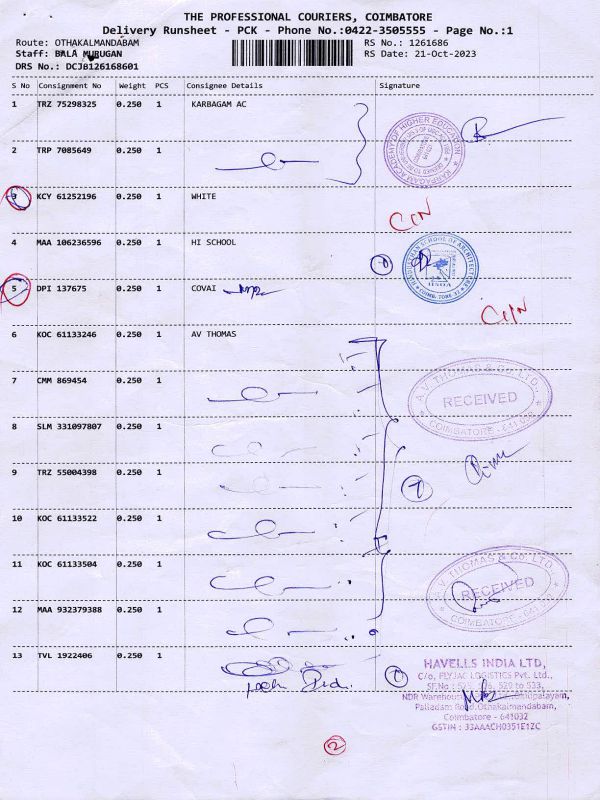 THE PROFESSIONAL COURIERS, COIMBATORE
Delivery Runsheet - PCK - Phone No.:0422-3505555 - Page No.:1
Route: OTHAKALMANDABAM
RS No.: 1261686
Staff: BALA MURUGAN
RS Date: 21-Oct-2023
DRS No.: DCJB126168601
S No Consignment No Weight PCS Consignee Details Signature
1 TRZ 75298325 0.250 1 KARBAGAM AC
2 TRP 7085649 0.250 1
3 KCY 61252196 0.250 1 WHITE
4 MAA 106236596 0.250 1 HI SCHOOL
5 DPI 137675 0.250 1 COVAI
6 KOC 61133246 0.250 1 AV THOMAS
7 CMM 869454 0.250 1
A.V. THOMAS & CO. LTD.
RECEIVED
COIMBATORE - 641
8 SLM 331097807 0.250 1
9 TRZ 55004398 0.250 1
7
10 KOC 61133522 0.250 1
11 KOC 61133504 0.250 1
A.V. THOMAS & CO. LTD.
RECEIVED
COIMBATORE - 641
12 MAA 932379388 0.250 1
13 TVL 1922406 0.250 1
HAVELLS INDIA LTD,
C/o, FLYJAC LOGISTICS Pvt. Ltd.,
SF.No : 529 to 533,
NDR Warehous
Palladam Road, Othakalmandabam,
Coimbatore - 641032
GSTIN : 33AAACH0351E1ZC
2